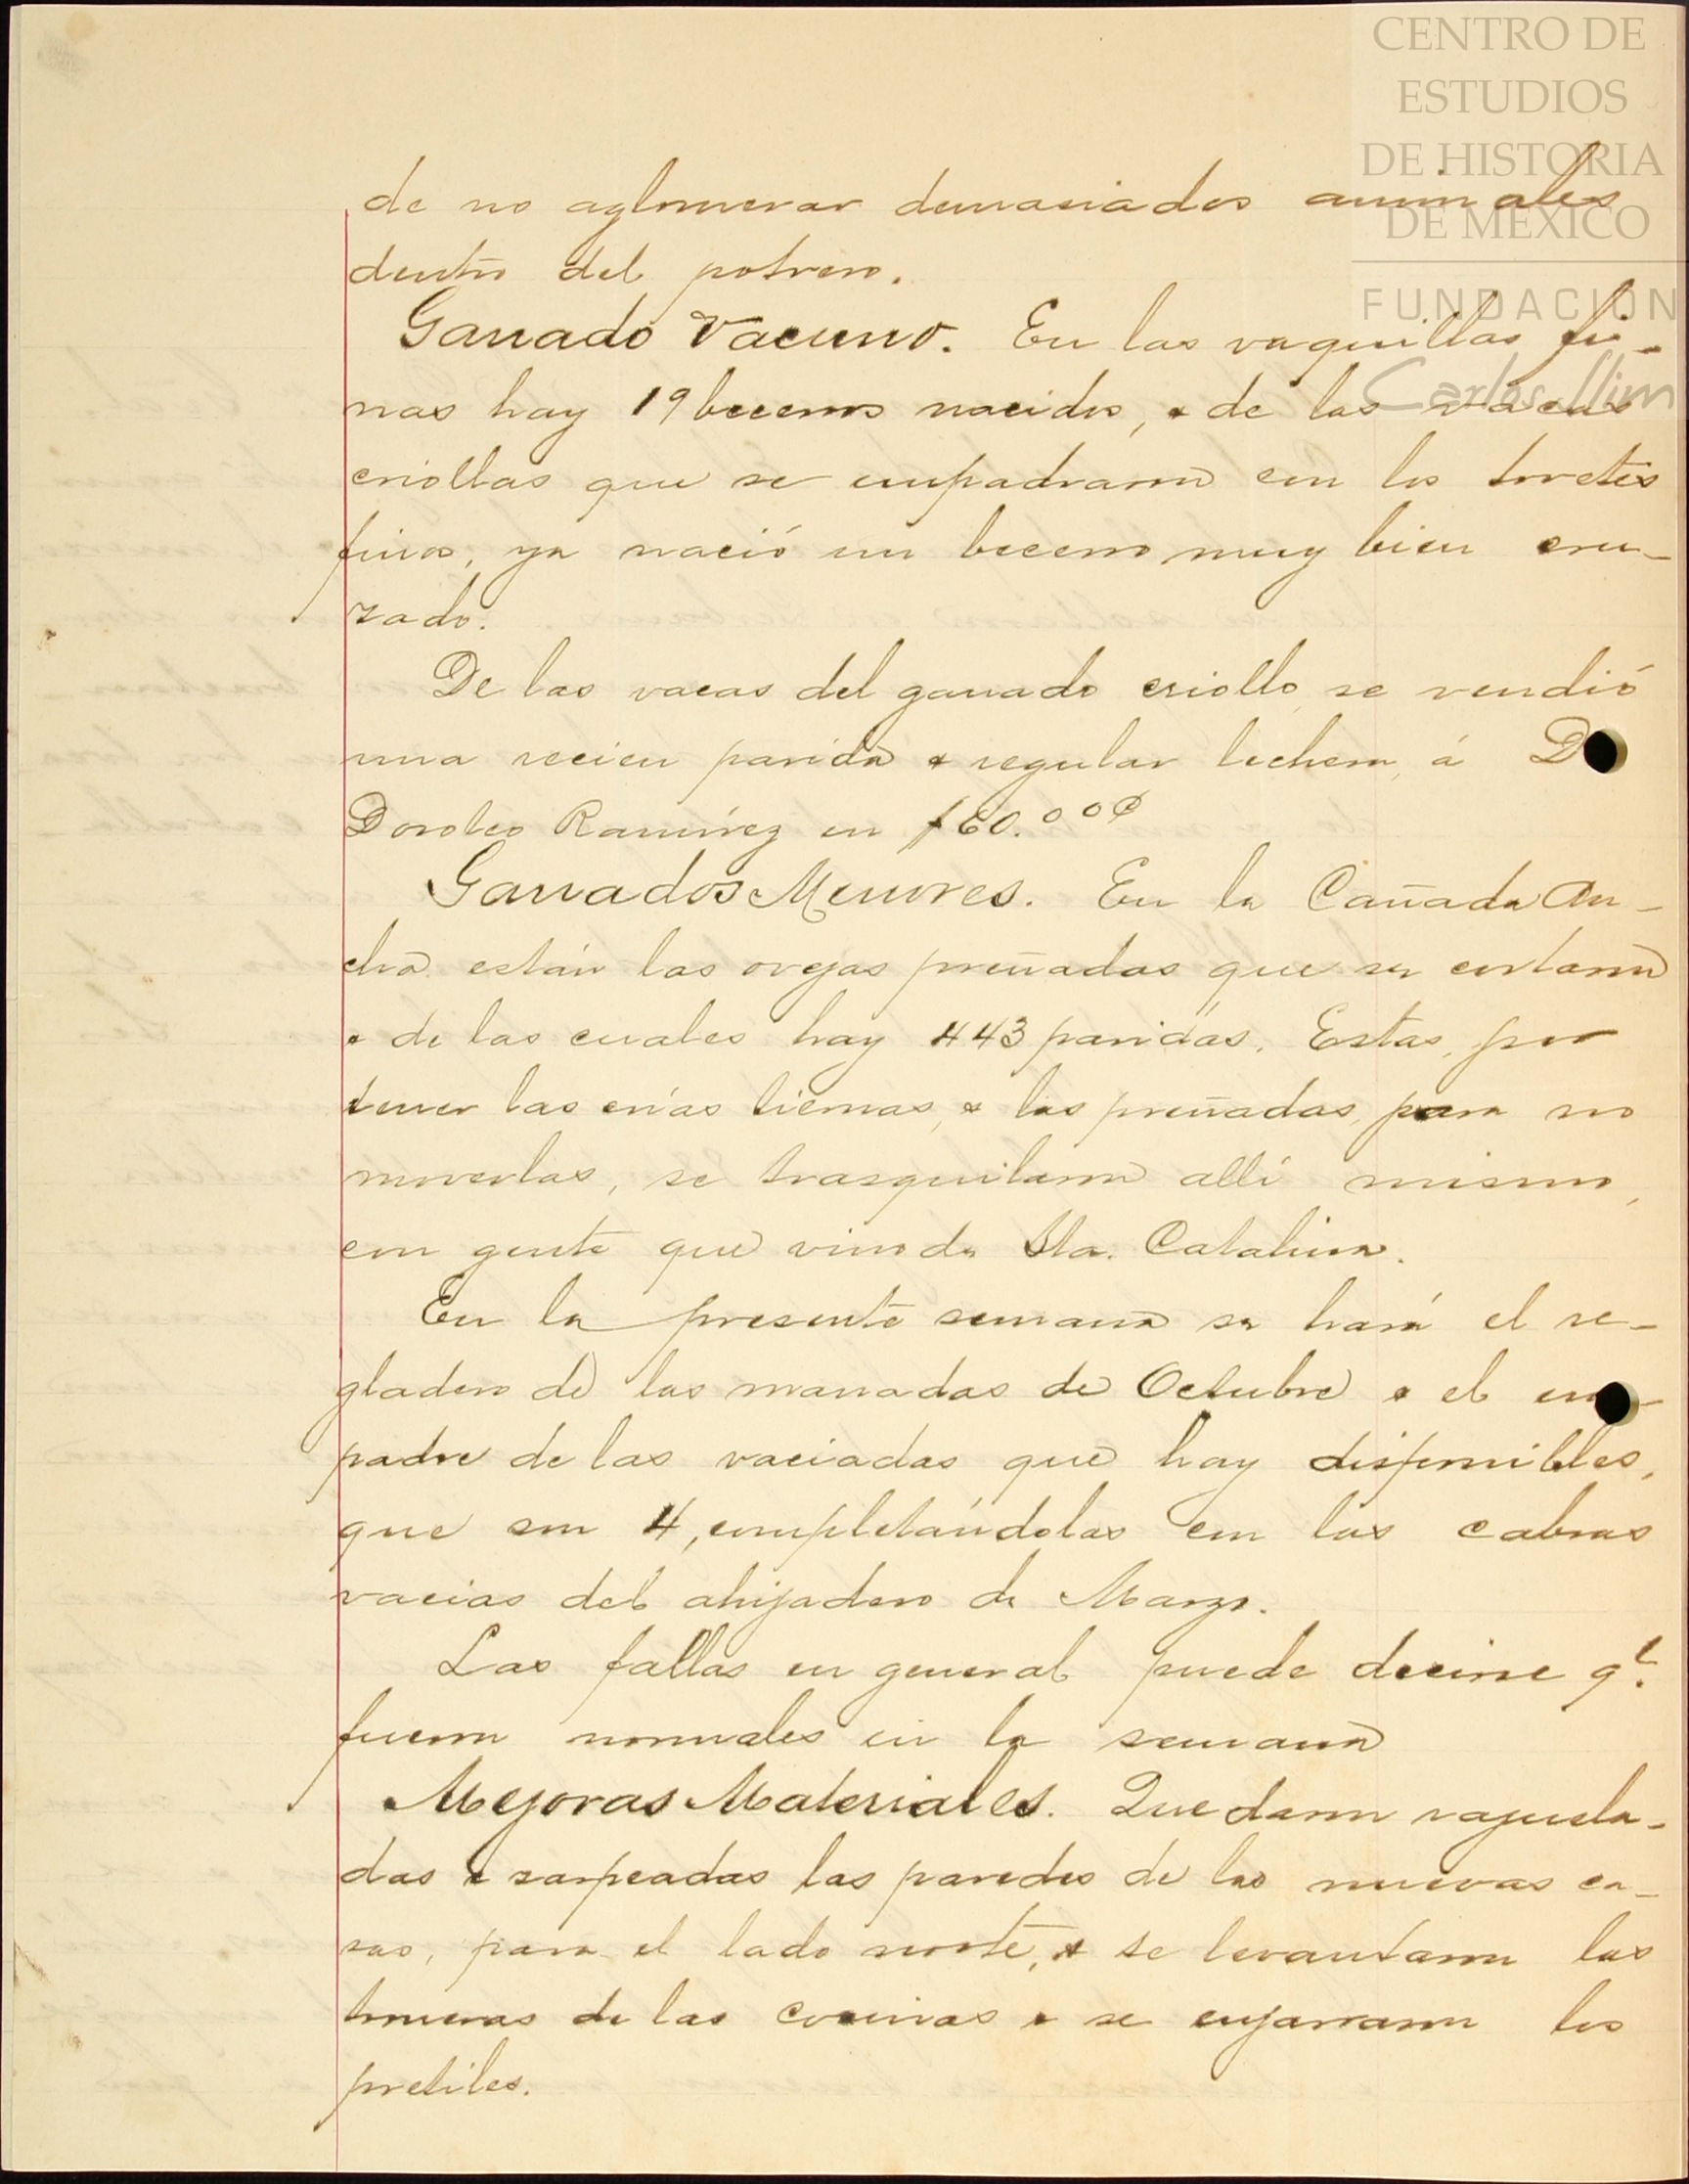 CENTRO DE
ESTUDIOS
DE HISTORIA
DE MEXICO
FUNDACIÓN
Carlos Slim
de no aglomerar demasiados animales
dentro del potrero.
Ganado Vacuno. En las vaquillas fi-
nas hay 19 becerros nacidos, & de las vacas
criollas que se empadraron con los toretes
finos, ya nació un becerro muy bien cru-
zado.
De las vacas del ganado criollo, se vendió
una recien parida & regular lechera, á D
Doroteo Ramírez en $60.00¢
Ganados Menores. En la Cañada An-
cha están las ovejas preñadas que se cortaron
& de las cuales hay 443 paridas. Estas, por
tener las crías tiernas, & las preñadas, para no
moverlas, se trasquilaron allí mismo,
con gente que vino de Sta. Catalina.
En la presente semana se hará el re-
gladero de las manadas de Octubre & el em-
padre de las vaciadas que hay disponibles,
que son 4, completándolas con las cabras
vacias del ahijadero de Marzo.
Las fallas en general puede decirse qe.
fueron normales en la semana
Mejoras Materiales. Quedaron rajuela-
das & zarpeadas las paredes de las nuevas ca-
sas, para el lado norte, & se levantaron las
troneras de las cocinas & se enjarraron los
pretiles.